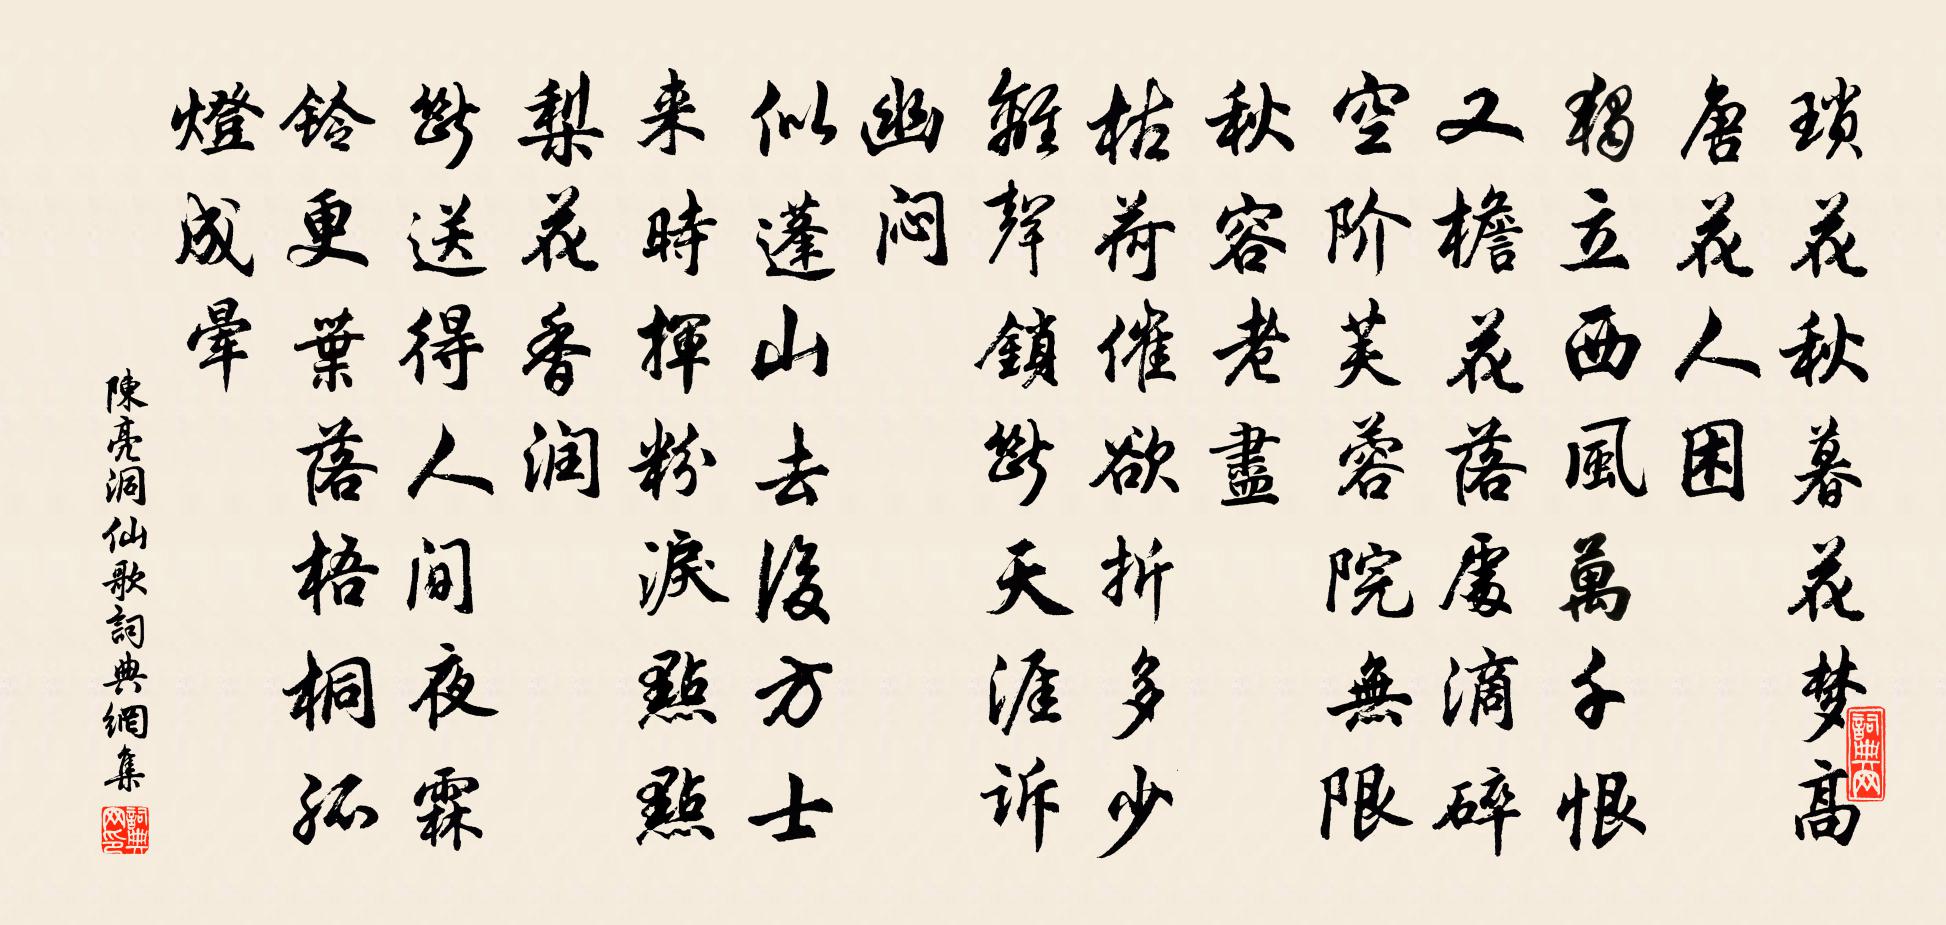 琐花秋暮花梦高
唐花人困
獨立西風萬千恨
又檐花落處滴碎
空阶芙蓉院無限
秋容老盡
枯荷催欲折多少
離聲鎖斷天涯诉
幽闷
似蓬山去後方士
来時揮粉淚點點
梨花香润
斷送得人间夜霖
鈴更葉落梧桐孤
燈成暈
陳亮洞仙歌詞典網集
詞典网
詞典网印